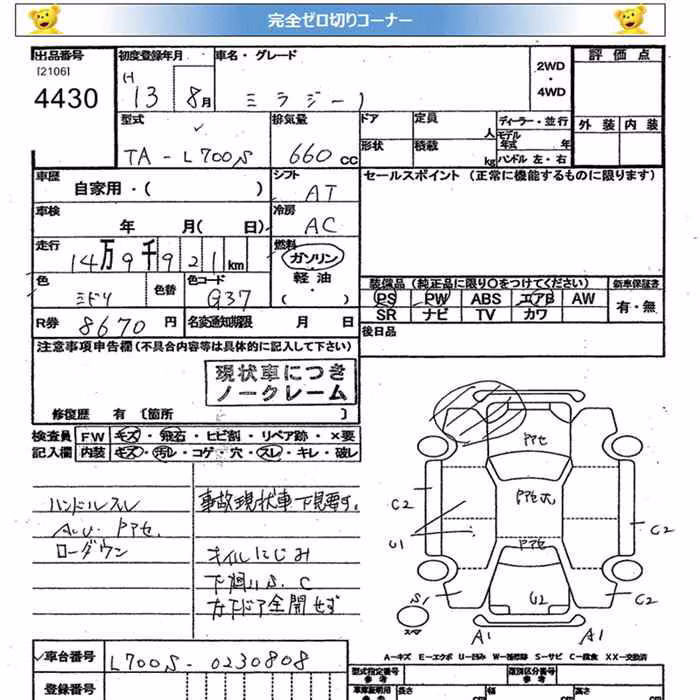 完全ゼロ切りコーナー
出品番号 初度登録年月 車名・グレード 2WD・4WD 評価点
[2106]
4430 H 13 8月 ミラジーノ
型式 排気量 ドア 定員 人 ディーラー・並行 外装 内装
TA-L700S 660cc 形状 積載 kg モデル年式 年 ハンドル 左・右
車歴 自家用・( ) シフト AT セールスポイント (正常に機能するものに限ります)
車検 年 月( 日) 冷房 AC
走行 14万9千921km 燃料 ガソリン・軽油・( )
色 ミドリ 色替 色コード G37
装備品 (純正品に限り○をつけてください) 新車保証書
PS PW ABS エアB AW 有・無
SR ナビ TV カワ
R券 8670円 名変通知期限 月 日 後日品
注意事項申告欄(不具合内容等は具体的に記入して下さい)
現状車につき
ノークレーム
修復歴 有 [箇所 ]
検査員 FW キズ・飛石・ヒビ割・リペア跡・×要
記入欄 内装 キズ・汚レ・コゲ・穴・スレ・キレ・破レ
ハンドルスレ 事故現状車下見要す。
ローダウン オイルにじみ
下廻りS.C
右下ドア全開せず
C2 C2
U1
S1 U2 C2
スペア A1 A1
A-キズ E-エクボ U-凹み W-補修跡 S-サビ C-腐食 XX-交換済
車台番号 L700S-0230808 型式指定番号 参考 類別区分番号 参考
登録番号 車庫証明用 参考 長さ cm 幅 cm 高さ cm